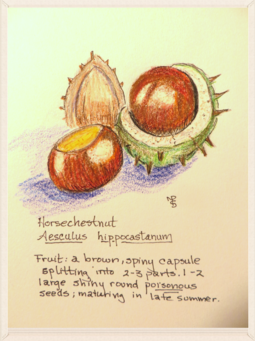 Horsechestnut
Aesculus hippocastanum
Fruit: a brown, spiny capsule
splitting into 2-3 parts. 1-2
large shiny round poisonous
seeds; maturing in late summer.